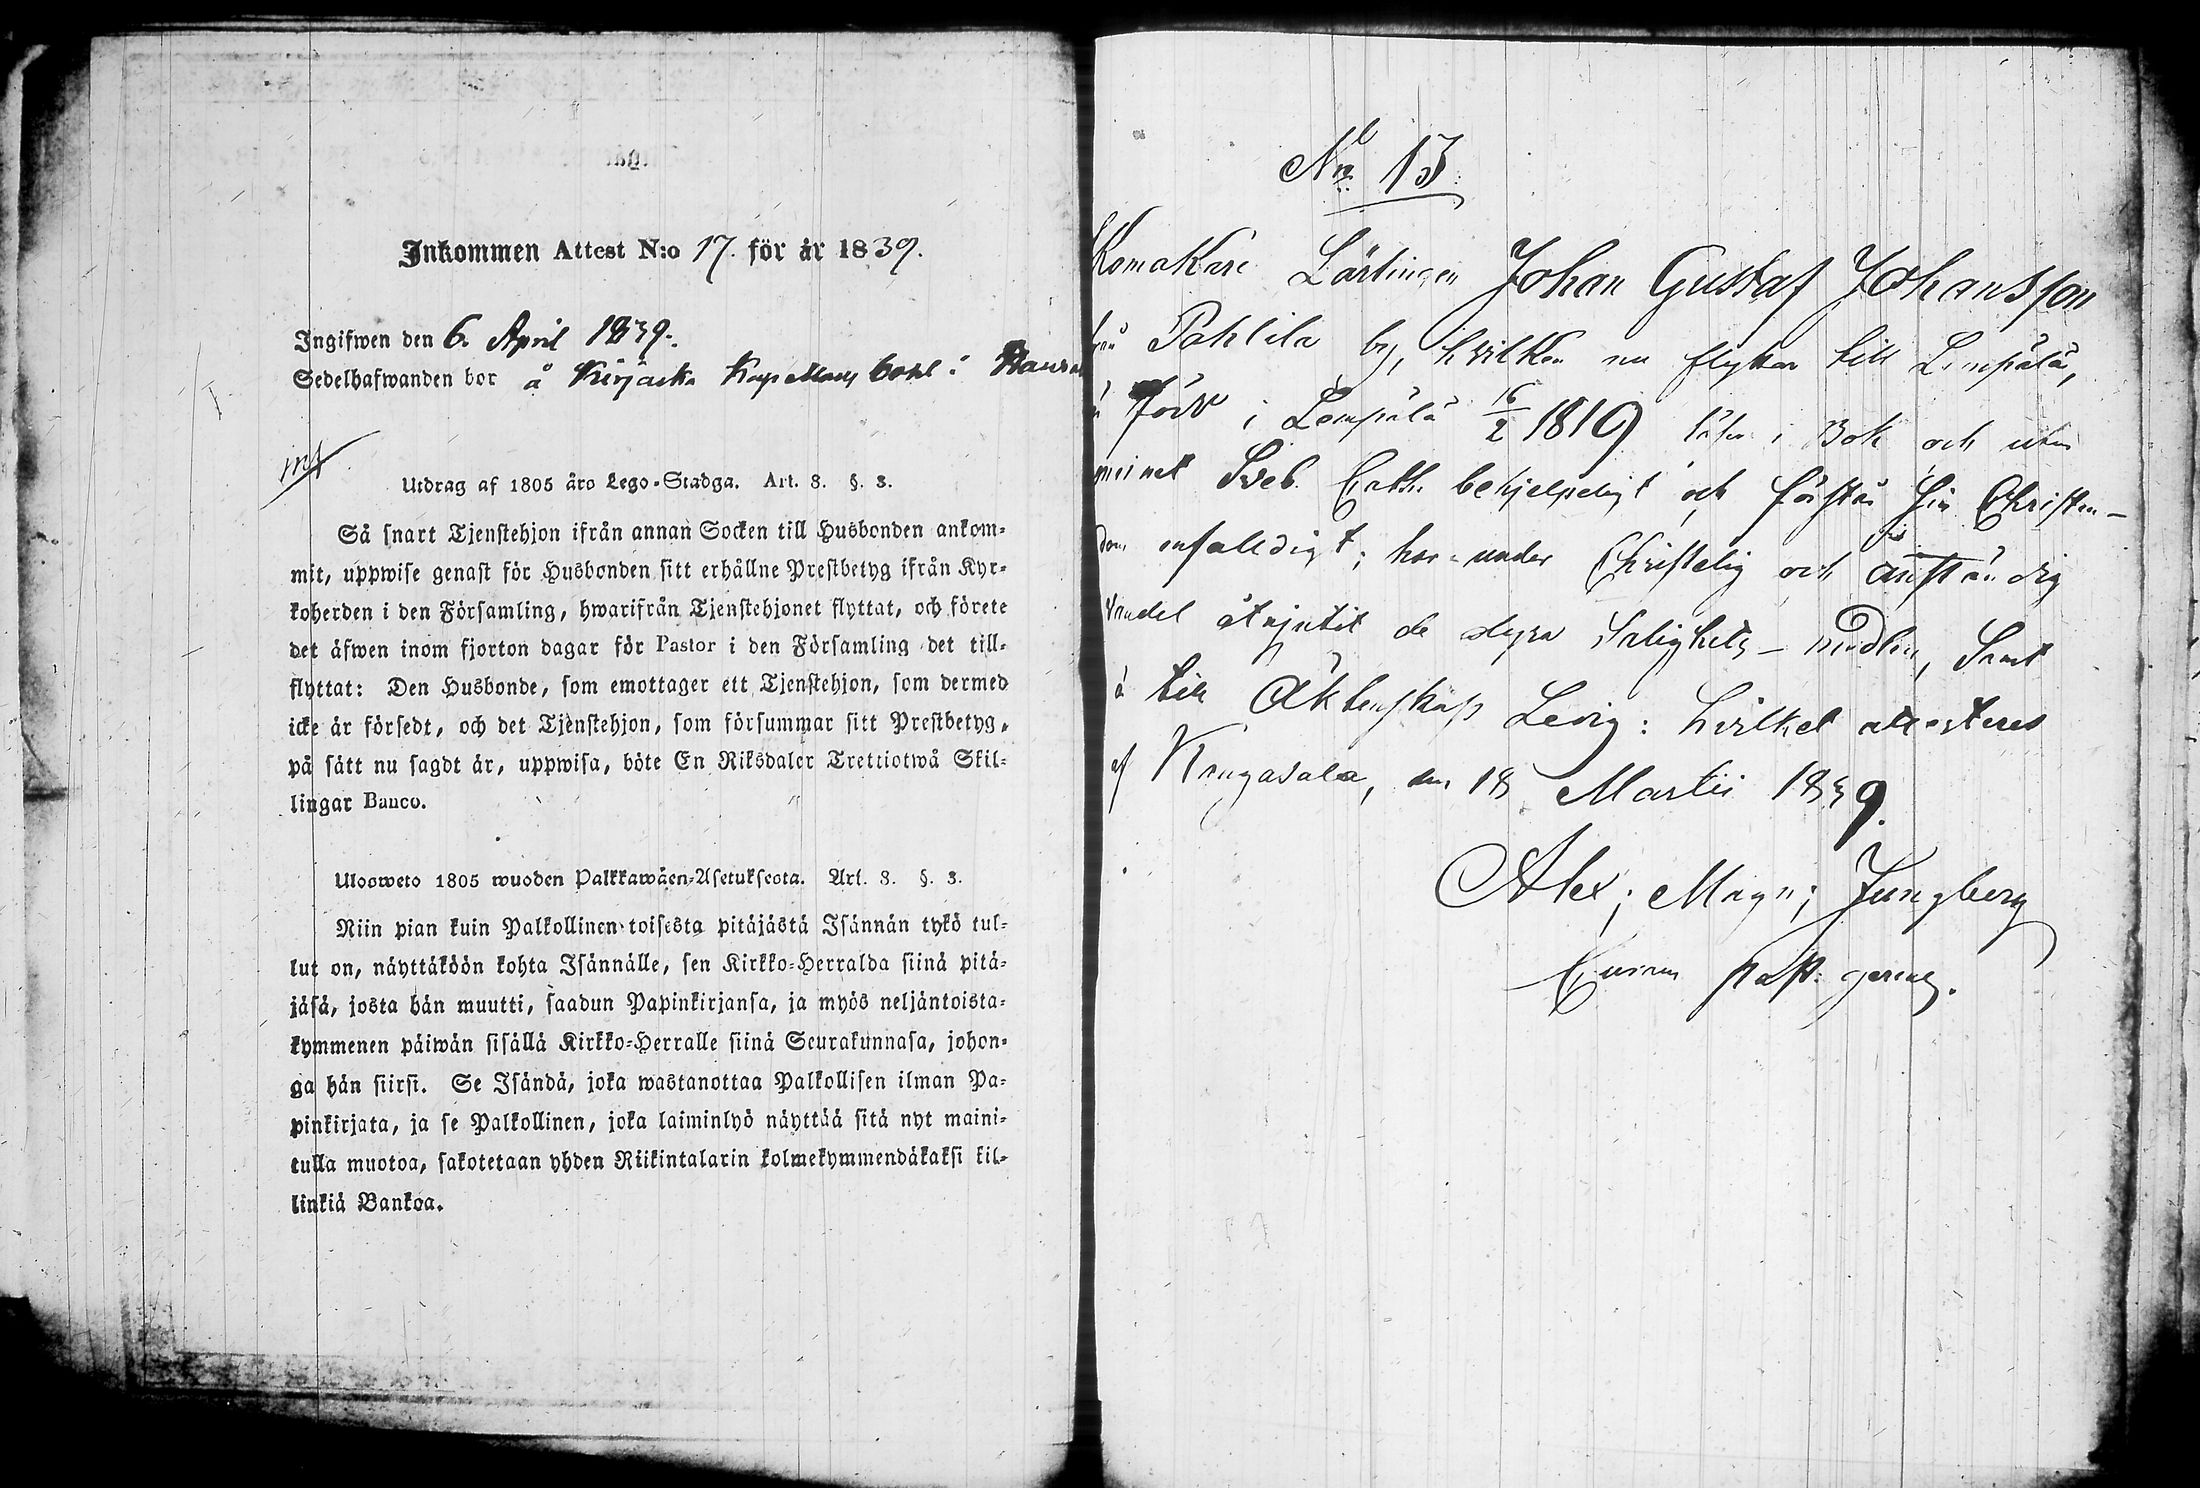 Inkommen Attest N:o 17. för år 1839.
Ingifwen den 6. April 1839.
Sedelhafwanden bor å Kirjaska Kapellans bohl i
Utdrag af 1805 års Lego-Stadga. Art. 8. §. 3.
Så snart Tjenstehjon ifrån annan Socken till Husbonden ankom-
mit, uppwise genast för Husbonden sitt erhållne Prestbetyg ifrån Kyr-
koherden i den Församling, hwarifrån Tjenstehjonet flyttat, och förete
det äfwen inom fjorton dagar för Pastor i den Församling det till-
flyttat: Den Husbonde, som emottager ett Tjenstehjon, som dermed
icke är försedt, och det Tjenstehjon, som försummar sitt Prestbetyg,
på sätt nu sagdt är, uppwisa, böte En Riksdaler Trettiotwå Skil-
lingar Banco.
Ulosweto 1805 wuoden Palkkawäen-Asetuksesta. Art. 8. §. 3.
Niin pian kuin Palkollinen toisesta pitäjästä Isännän tykö tul-
lut on, näyttäköön kohta Isännälle, sen Kirkko-Herralda siinä pitä-
jäsä, josta hän muutti, saadun Papinkirjansa, ja myös neljäntoista-
kymmenen päiwän sisällä Kirkko-Herralle siinä Seurakunnasa, johon-
ga hän siirsi. Se Isändä, joka wastanottaa Palkollisen ilman Pa-
pinkirjata, ja se Palkollinen, joka laiminlyö näyttää sitä nyt maini-
tulla muotoa, sakotetaan yhden Riikintalarin kolmekymmendäkaksi kil-
linkiä Bankoa.
No 13
Lärlingen Johan Gustaf Johansson
från Pohlila by, hvilken nu flyttar till Lempälä,
är född i Lempälä 16/2 1819 läser i Bok och utan
minnet Sveb. Cath. behjelpeligt och förstår sin Christen-
dom enfalldigt; har under Christelig och anständig
vandel åtnjutit de dyra Salighets-medlen, Samt
är till Äktenskap Ledig: hvilket attesteras
af Kangasala, den 18 Martii 1839.
Alex; Magn; Jungberg
past: